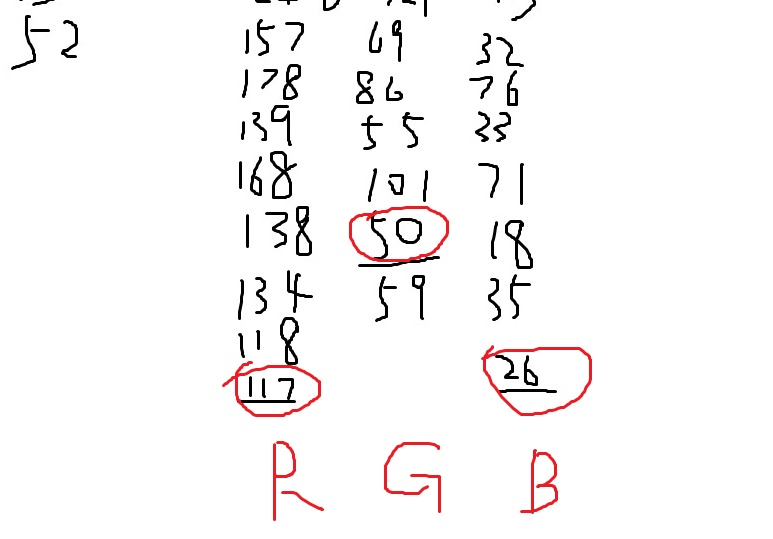 52 157 69 32
178 86 76
139 55 33
168 101 71
138 50 18
134 59 35
118
117 26
R G B